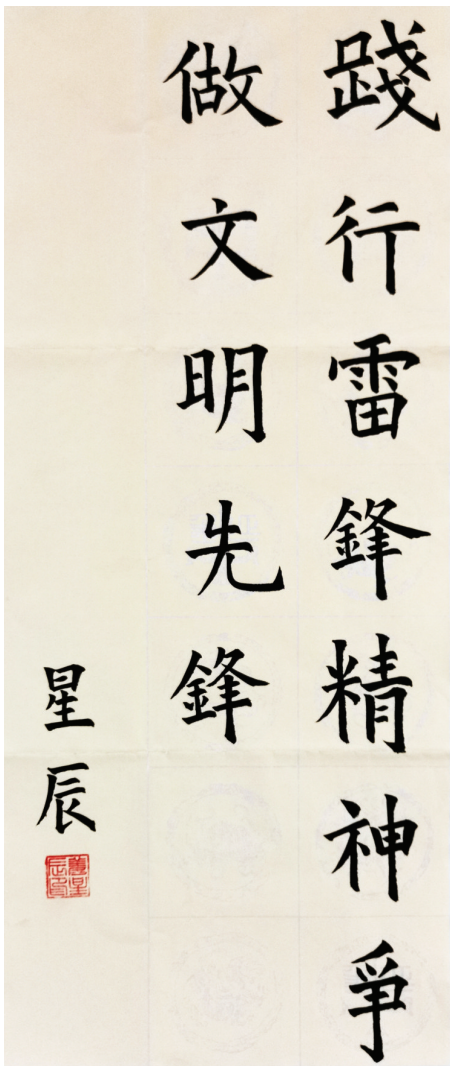 踐行雷鋒精神爭
做文明先鋒
星辰